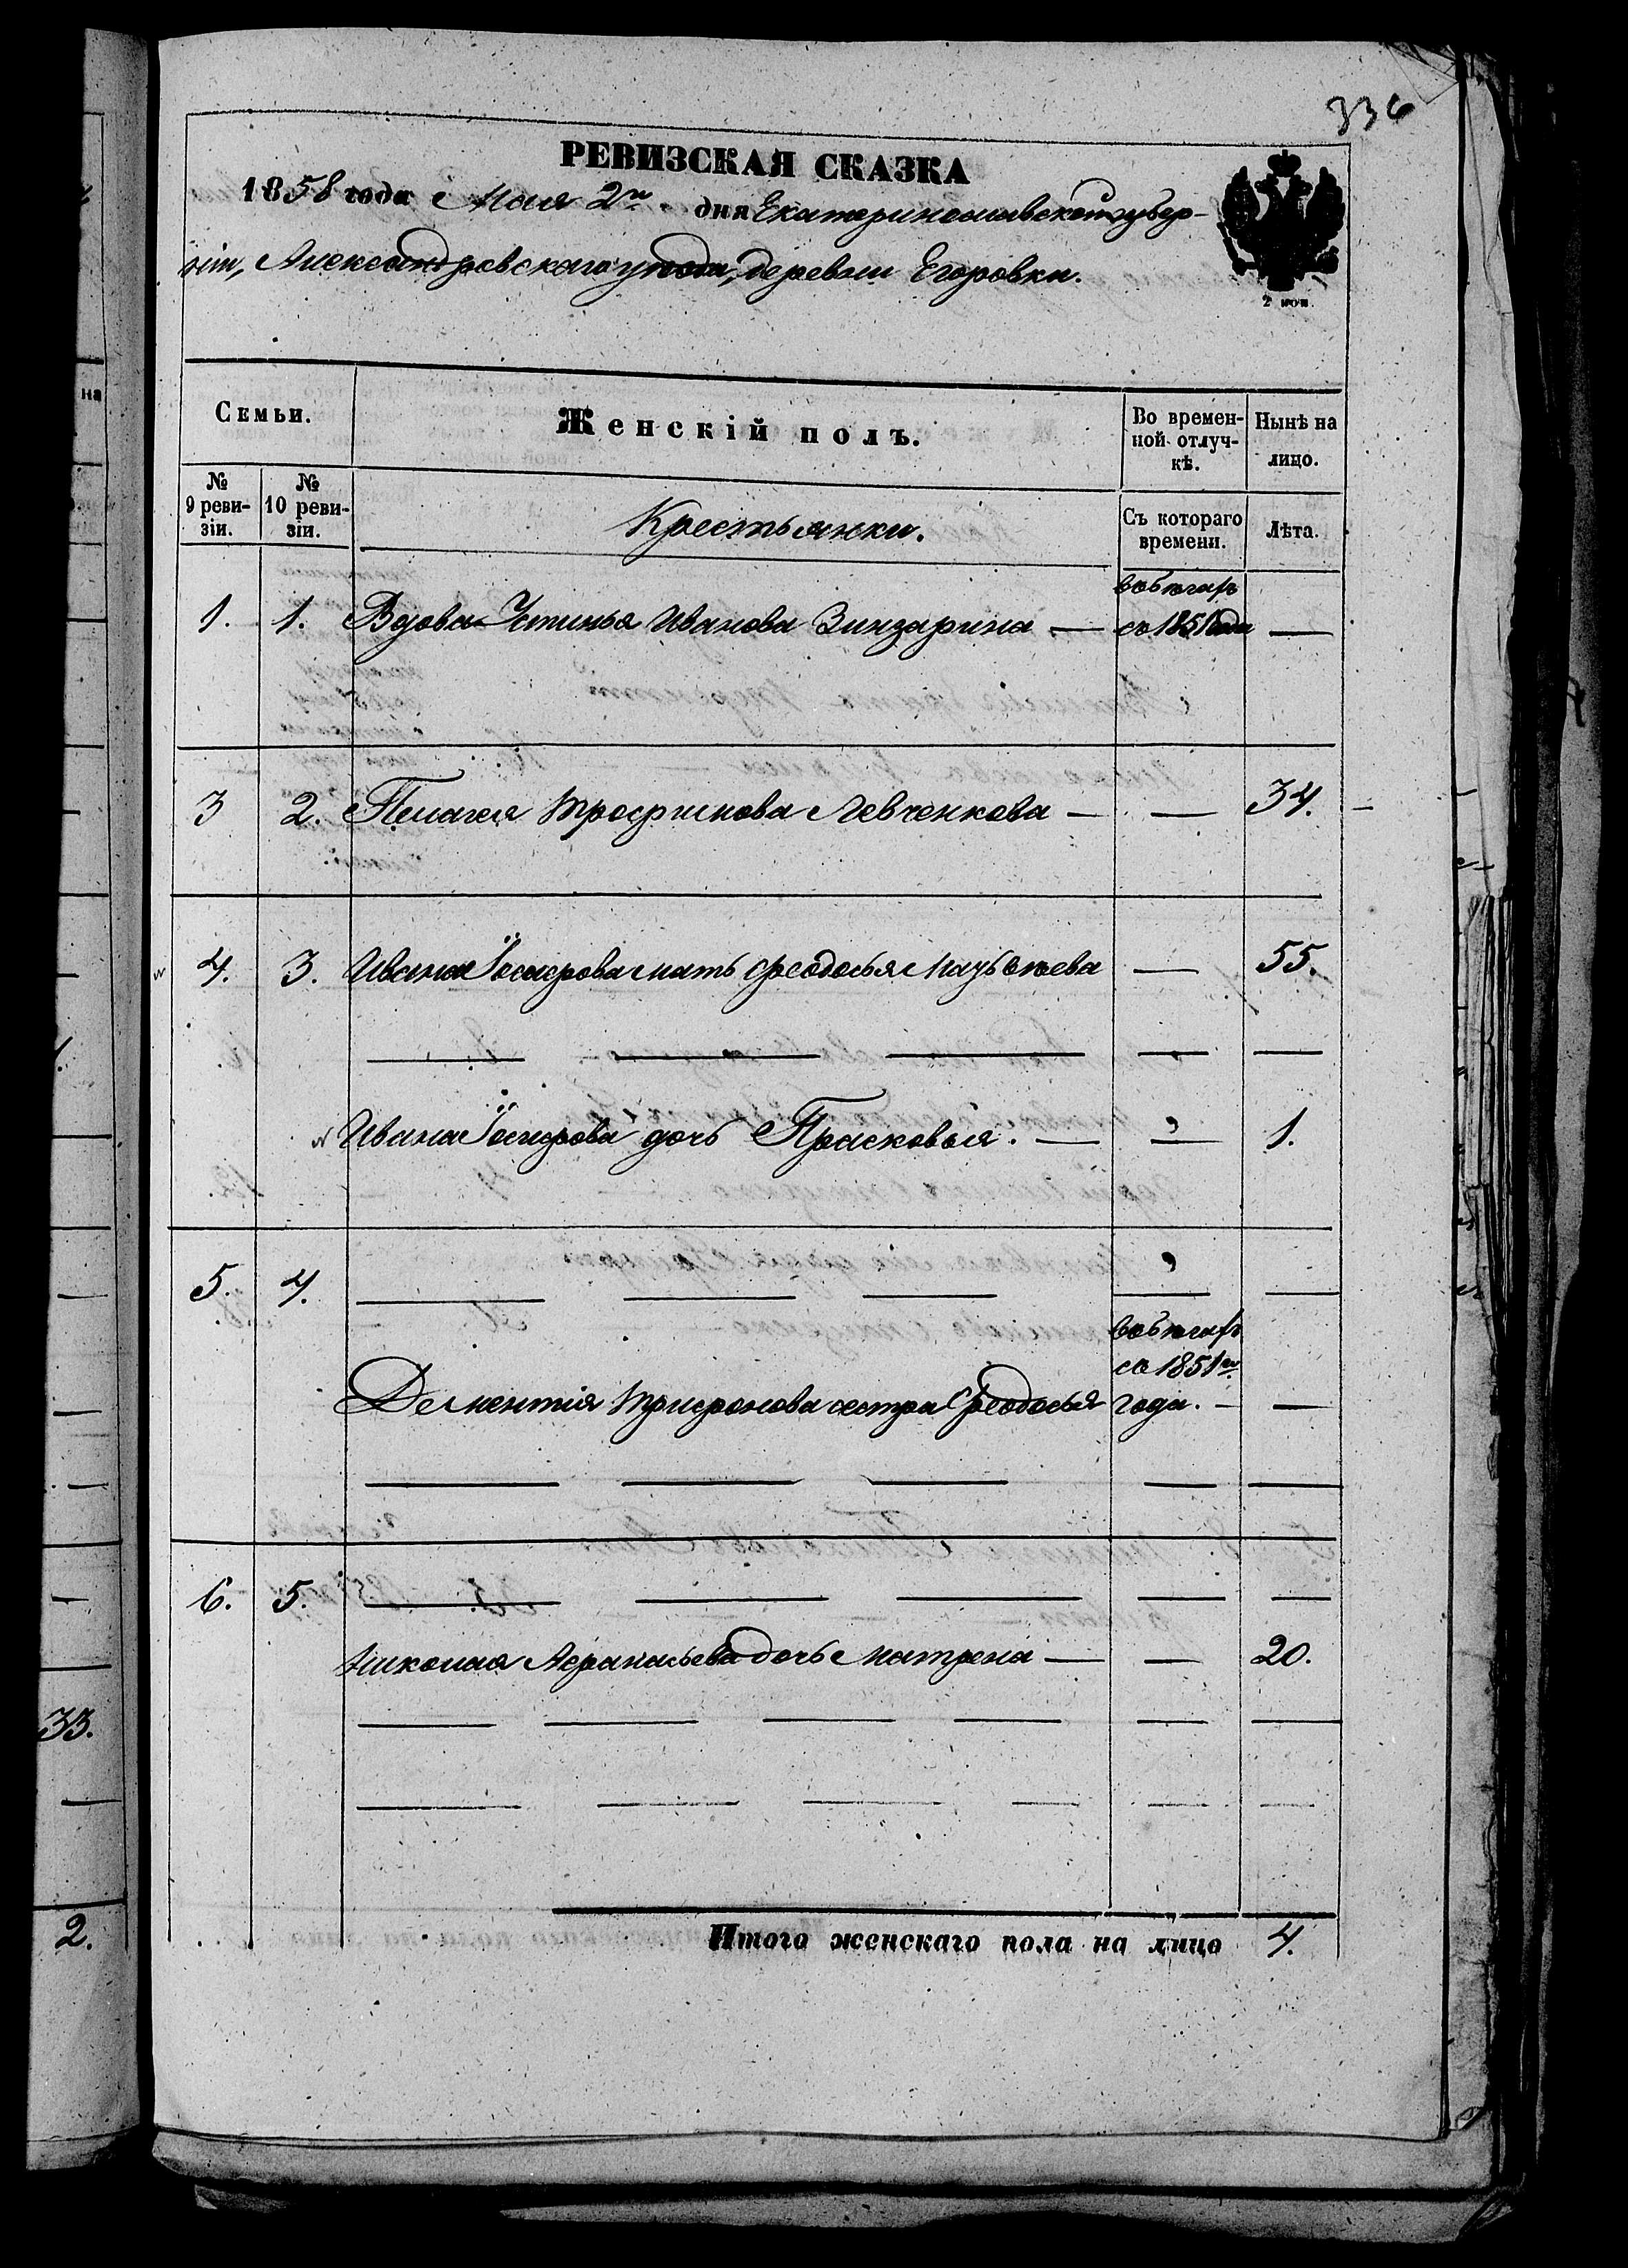 336
РЕВИЗСКАЯ СКАЗКА
1858 года Мая 2го дня Екатеринославской губер-
ніи, Александровскаго уѣзда, деревни Егоровки.
2 коп.
на
Семьи.
Женскій полъ.
Во времен-
ной отлуч-
кѣ.
Нынѣ на
лицо.
№
9 реви-
зіи.
№
10 реви-
зіи.
Крестьянки.
Съ котораго
времени.
Лѣта.
въ бѣгахъ
1. 1. Вдова Устинья Иванова Зинзарина — съ 1851 года —
3 2. Пелагея Трофимова Левченкова — — 34.
4. 3. Ивана Іосифова мать Феодосья Мазьѣева — 55.
Ивана Іосифова дочь Прасковья. — — 1.
5. 4.
въ бѣгахъ
съ 1851го
Дементія Трифонова сестра Феодосья года. — —
6. 5.
Николая Афанасьева дочь Матрена — — 20.
33.
2.
Итого женскаго пола на лицо 4.